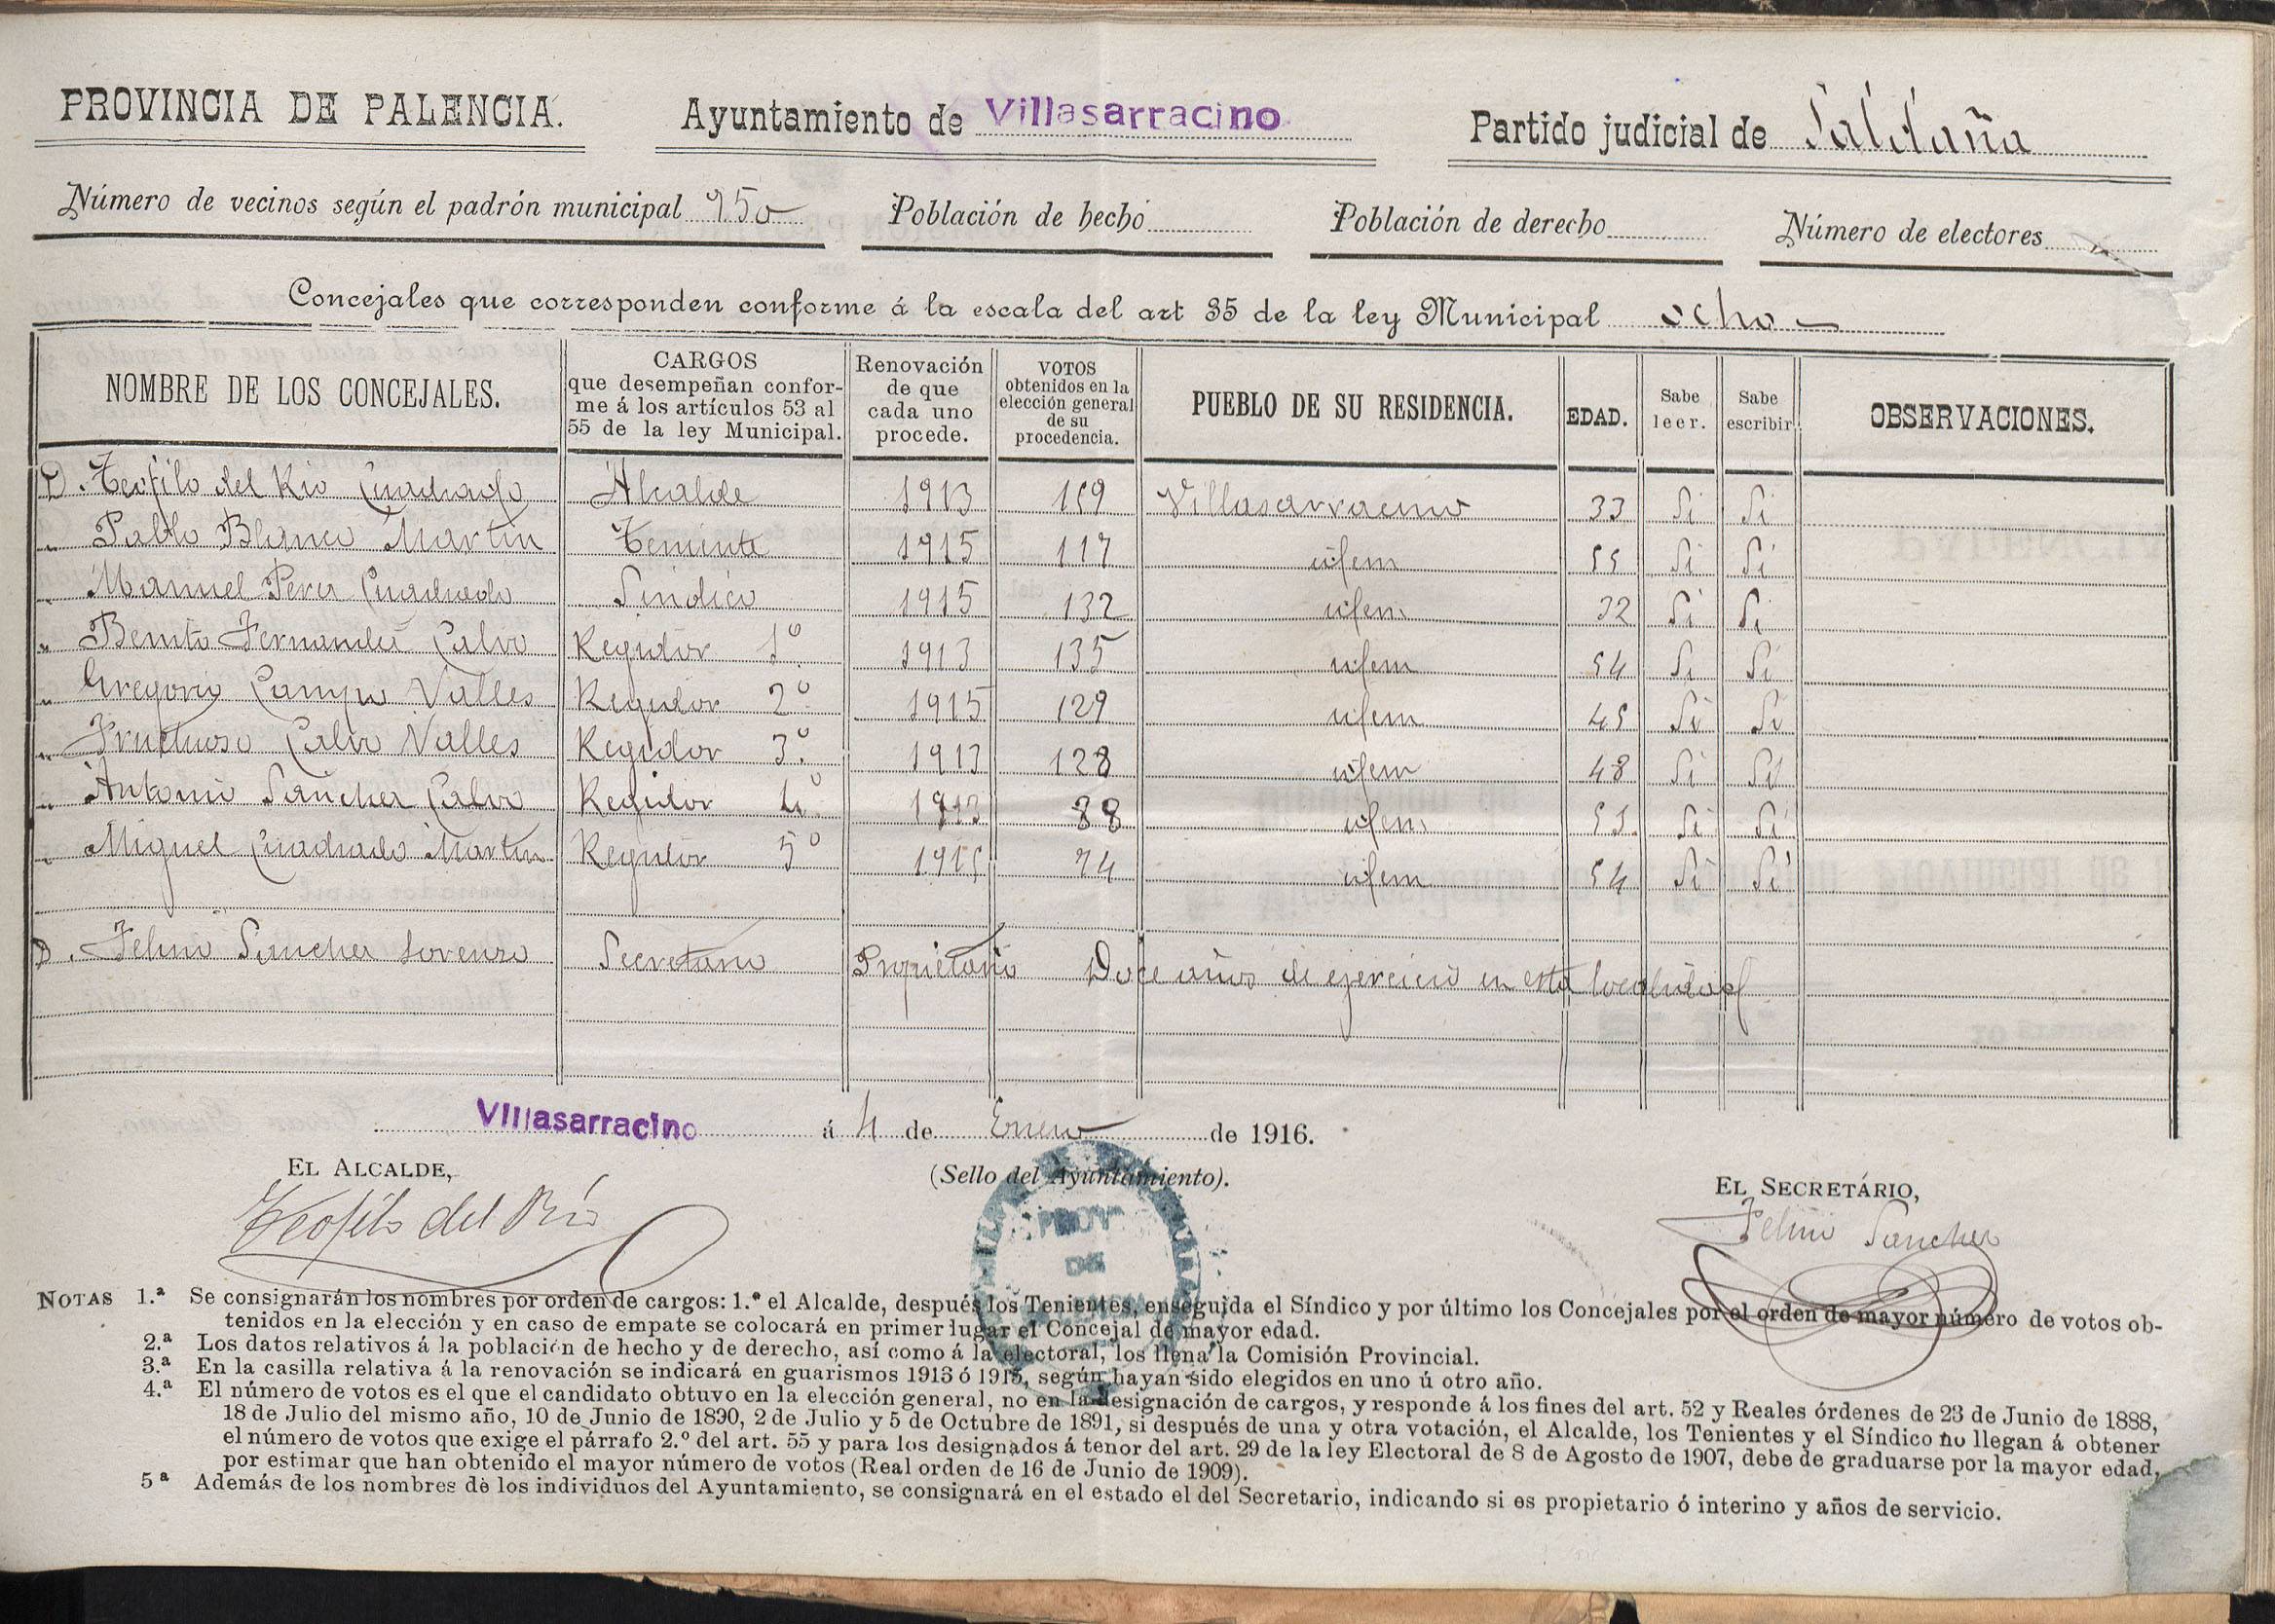 PROVINCIA DE PALENCIA. Ayuntamiento de Villasarracino Partido judicial de Saldaña
Número de vecinos según el padrón municipal 950 Población de hecho Población de derecho Número de electores
Concejales que corresponden conforme á la escala del art 35 de la ley Municipal ocho
NOMBRE DE LOS CONCEJALES.
CARGOS
que desempeñan confor-
me á los artículos 53 al
55 de la ley Municipal.
Renovación
de que
cada uno
procede.
VOTOS
obtenidos en la
elección general
de su
procedencia.
PUEBLO DE SU RESIDENCIA.
EDAD.
Sabe
leer.
Sabe
escribir
OBSERVACIONES.
D. Teofilo del Rio Cuadrado Alcalde 1913 159 Villasarracino 33 Si Si
" Pablo Blanco Martin Teniente 1915 117 idem 55 Si Si
" Manuel Perez Cuadrado Sindico 1915 132 idem 32 Si Si
" Benito Fernandez Calvo Regidor 1º 1913 135 idem 54 Si Si
" Gregorio Campo Valles Regidor 2º 1915 129 idem 45 Si Si
" Fructuoso Calvo Valles Regidor 3º 1913 128 idem 48 Si Si
" Antonio Sanchez Calvo Regidor 4º 1913 88 idem Si Si
" Miguel Cuadrado Martin Regidor 5º 1915 74 idem 54 Si Si
D. Felino Sanchez Lorenzo Secretario Propietario Doce años de ejercicio en esta localidad
Villasarracino á 4 de Enero de 1916.
EL ALCALDE, (Sello del Ayuntamiento). EL SECRETÁRIO,
Teofilo del Rio Felino Sanchez
PROVª
DE
NOTAS 1.ª Se consignarán los nombres por orden de cargos: 1.º el Alcalde, después los Tenientes, enseguida el Síndico y por último los Concejales por el orden de mayor número de votos ob-
tenidos en la elección y en caso de empate se colocará en primer lugar el Concejal de mayor edad.
2.ª Los datos relativos á la población de hecho y de derecho, así como á la electoral, los llena la Comisión Provincial.
3.ª En la casilla relativa á la renovación se indicará en guarismos 1913 ó 1915, según hayan sido elegidos en uno ú otro año.
4.ª El número de votos es el que el candidato obtuvo en la elección general, no en la designación de cargos, y responde á los fines del art. 52 y Reales órdenes de 23 de Junio de 1888,
18 de Julio del mismo año, 10 de Junio de 1890, 2 de Julio y 5 de Octubre de 1891, si después de una y otra votación, el Alcalde, los Tenientes y el Síndico no llegan á obtener
el número de votos que exige el párrafo 2.º del art. 55 y para los designados á tenor del art. 29 de la ley Electoral de 8 de Agosto de 1907, debe de graduarse por la mayor edad,
por estimar que han obtenido el mayor número de votos (Real orden de 16 de Junio de 1909).
5ª Además de los nombres de los individuos del Ayuntamiento, se consignará en el estado el del Secretario, indicando si es propietario ó interino y años de servicio.